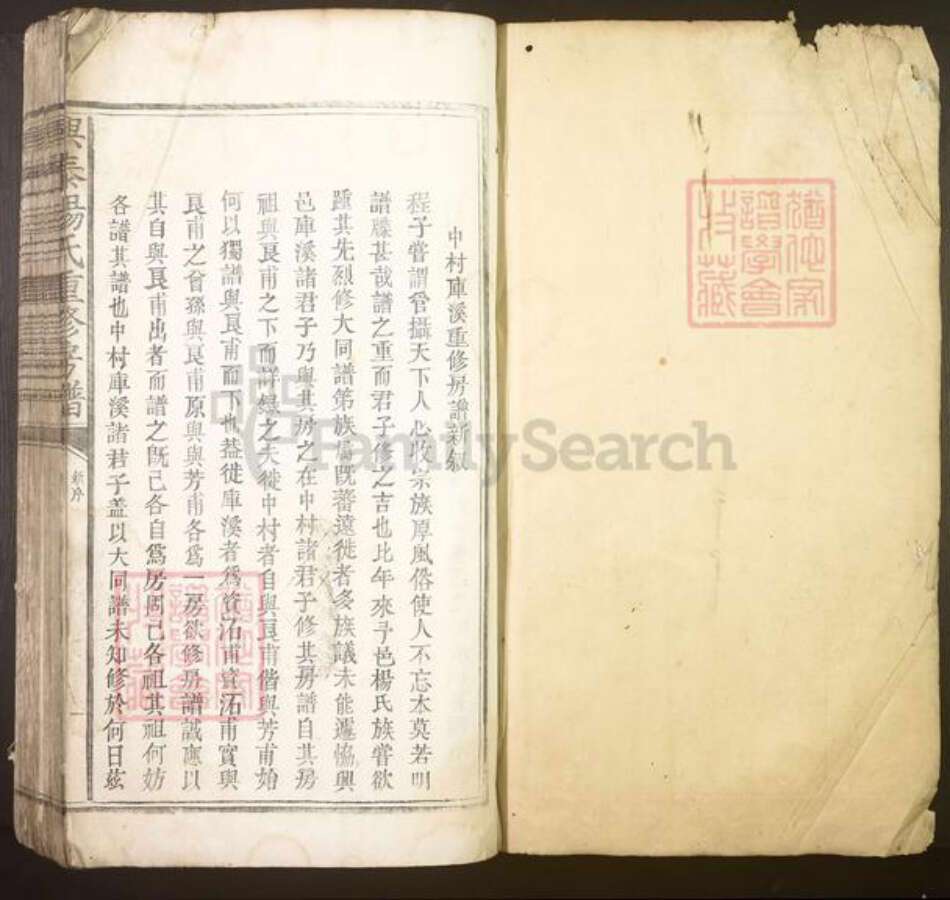 猶他家
譜學會
收藏
中村庫溪重修房譜新敘
程子嘗謂管攝天下人心收宗族厚風俗使人不忘本莫若明
譜牒甚哉譜之重而君子修之吉也比年來予邑楊氏族嘗欲
踵其先烈修大同譜第族屬既蕃遠徙者多族議未能遽恊興
邑庫溪諸君子乃與其房之在中村諸君子修其房譜自其房
祖與良甫之下而詳錄之夫徙中村者自與良甫偕與芳甫始
何以獨譜與良甫而下也葢徙庫溪者爲資滔甫資滔甫實與
良甫之曾孫與良甫原與與芳甫各爲一房欲修房譜誠應以
其自與良甫出者而譜之旣已各自爲房固已各祖其祖何妨
各譜其譜也中村庫溪諸君子葢以大同譜未知修於何日茲
楊氏重修房譜
新序
一
FamilySearch